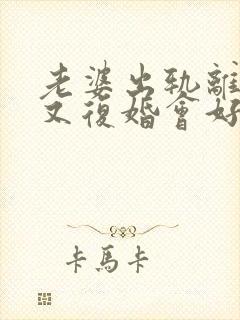 老婆出軌離
又復婚會好
卡馬卡